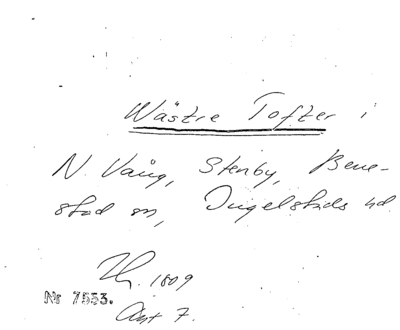 Wästre Tofter i
N. Vång, Stenby, Bene-
stad sn, Ingelstads hd
1809
Nr 7553.
Akt 7.